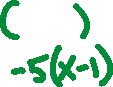 (     )
-5(x-1)